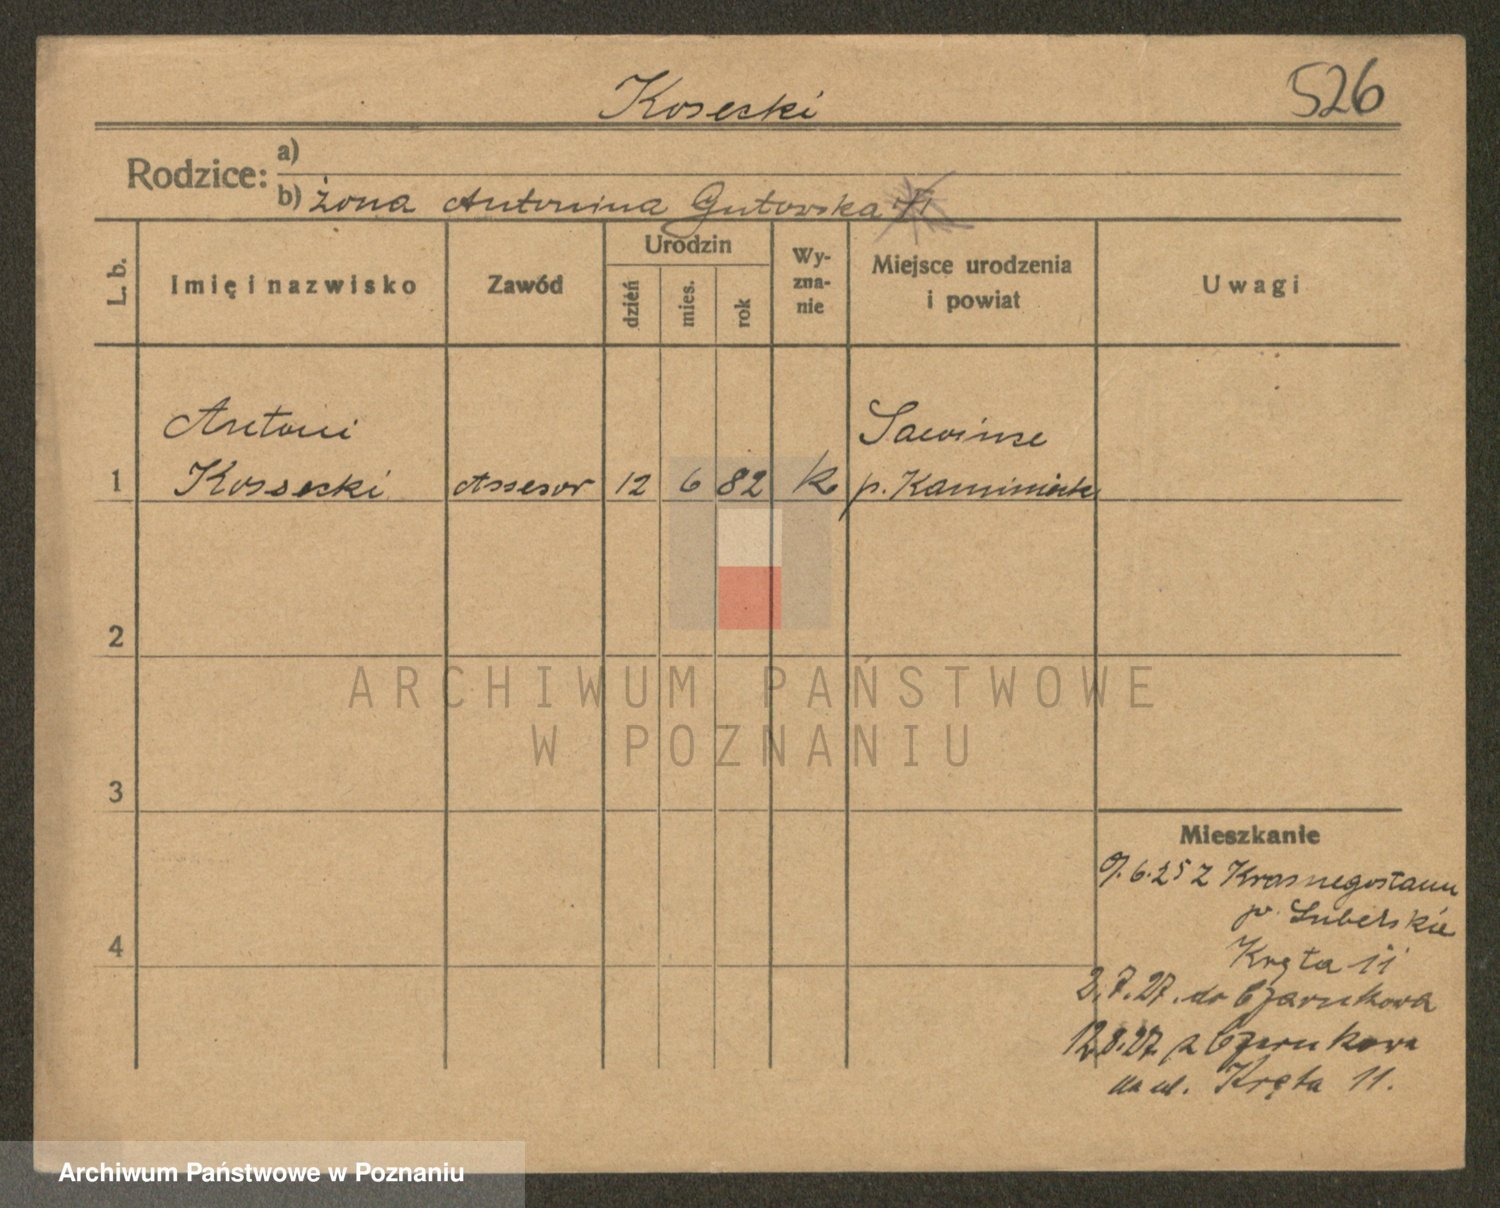 Kosecki
526
Rodzice:
a)
b) żona Antonina Gutowska
L. b.
Imię i nazwisko
Zawód
Urodzin
dzień
mies.
rok
Wy-
zna-
nie
Miejsce urodzenia
i powiat
Uwagi
Antoni
Kosecki
1
Assesor
12
6
82
k
p.
2
ARCHIWUM PAŃSTWOWE
W POZNANIU
3
Mieszkanie
9.6.25 z Krasnegostawu
p. Lubelskie
4
Kręta 11
2.7.27. do Czarnkowa
12.8.27 z Czarnkowa
na ul. Kręta 11.
Archiwum Państwowe w Poznaniu